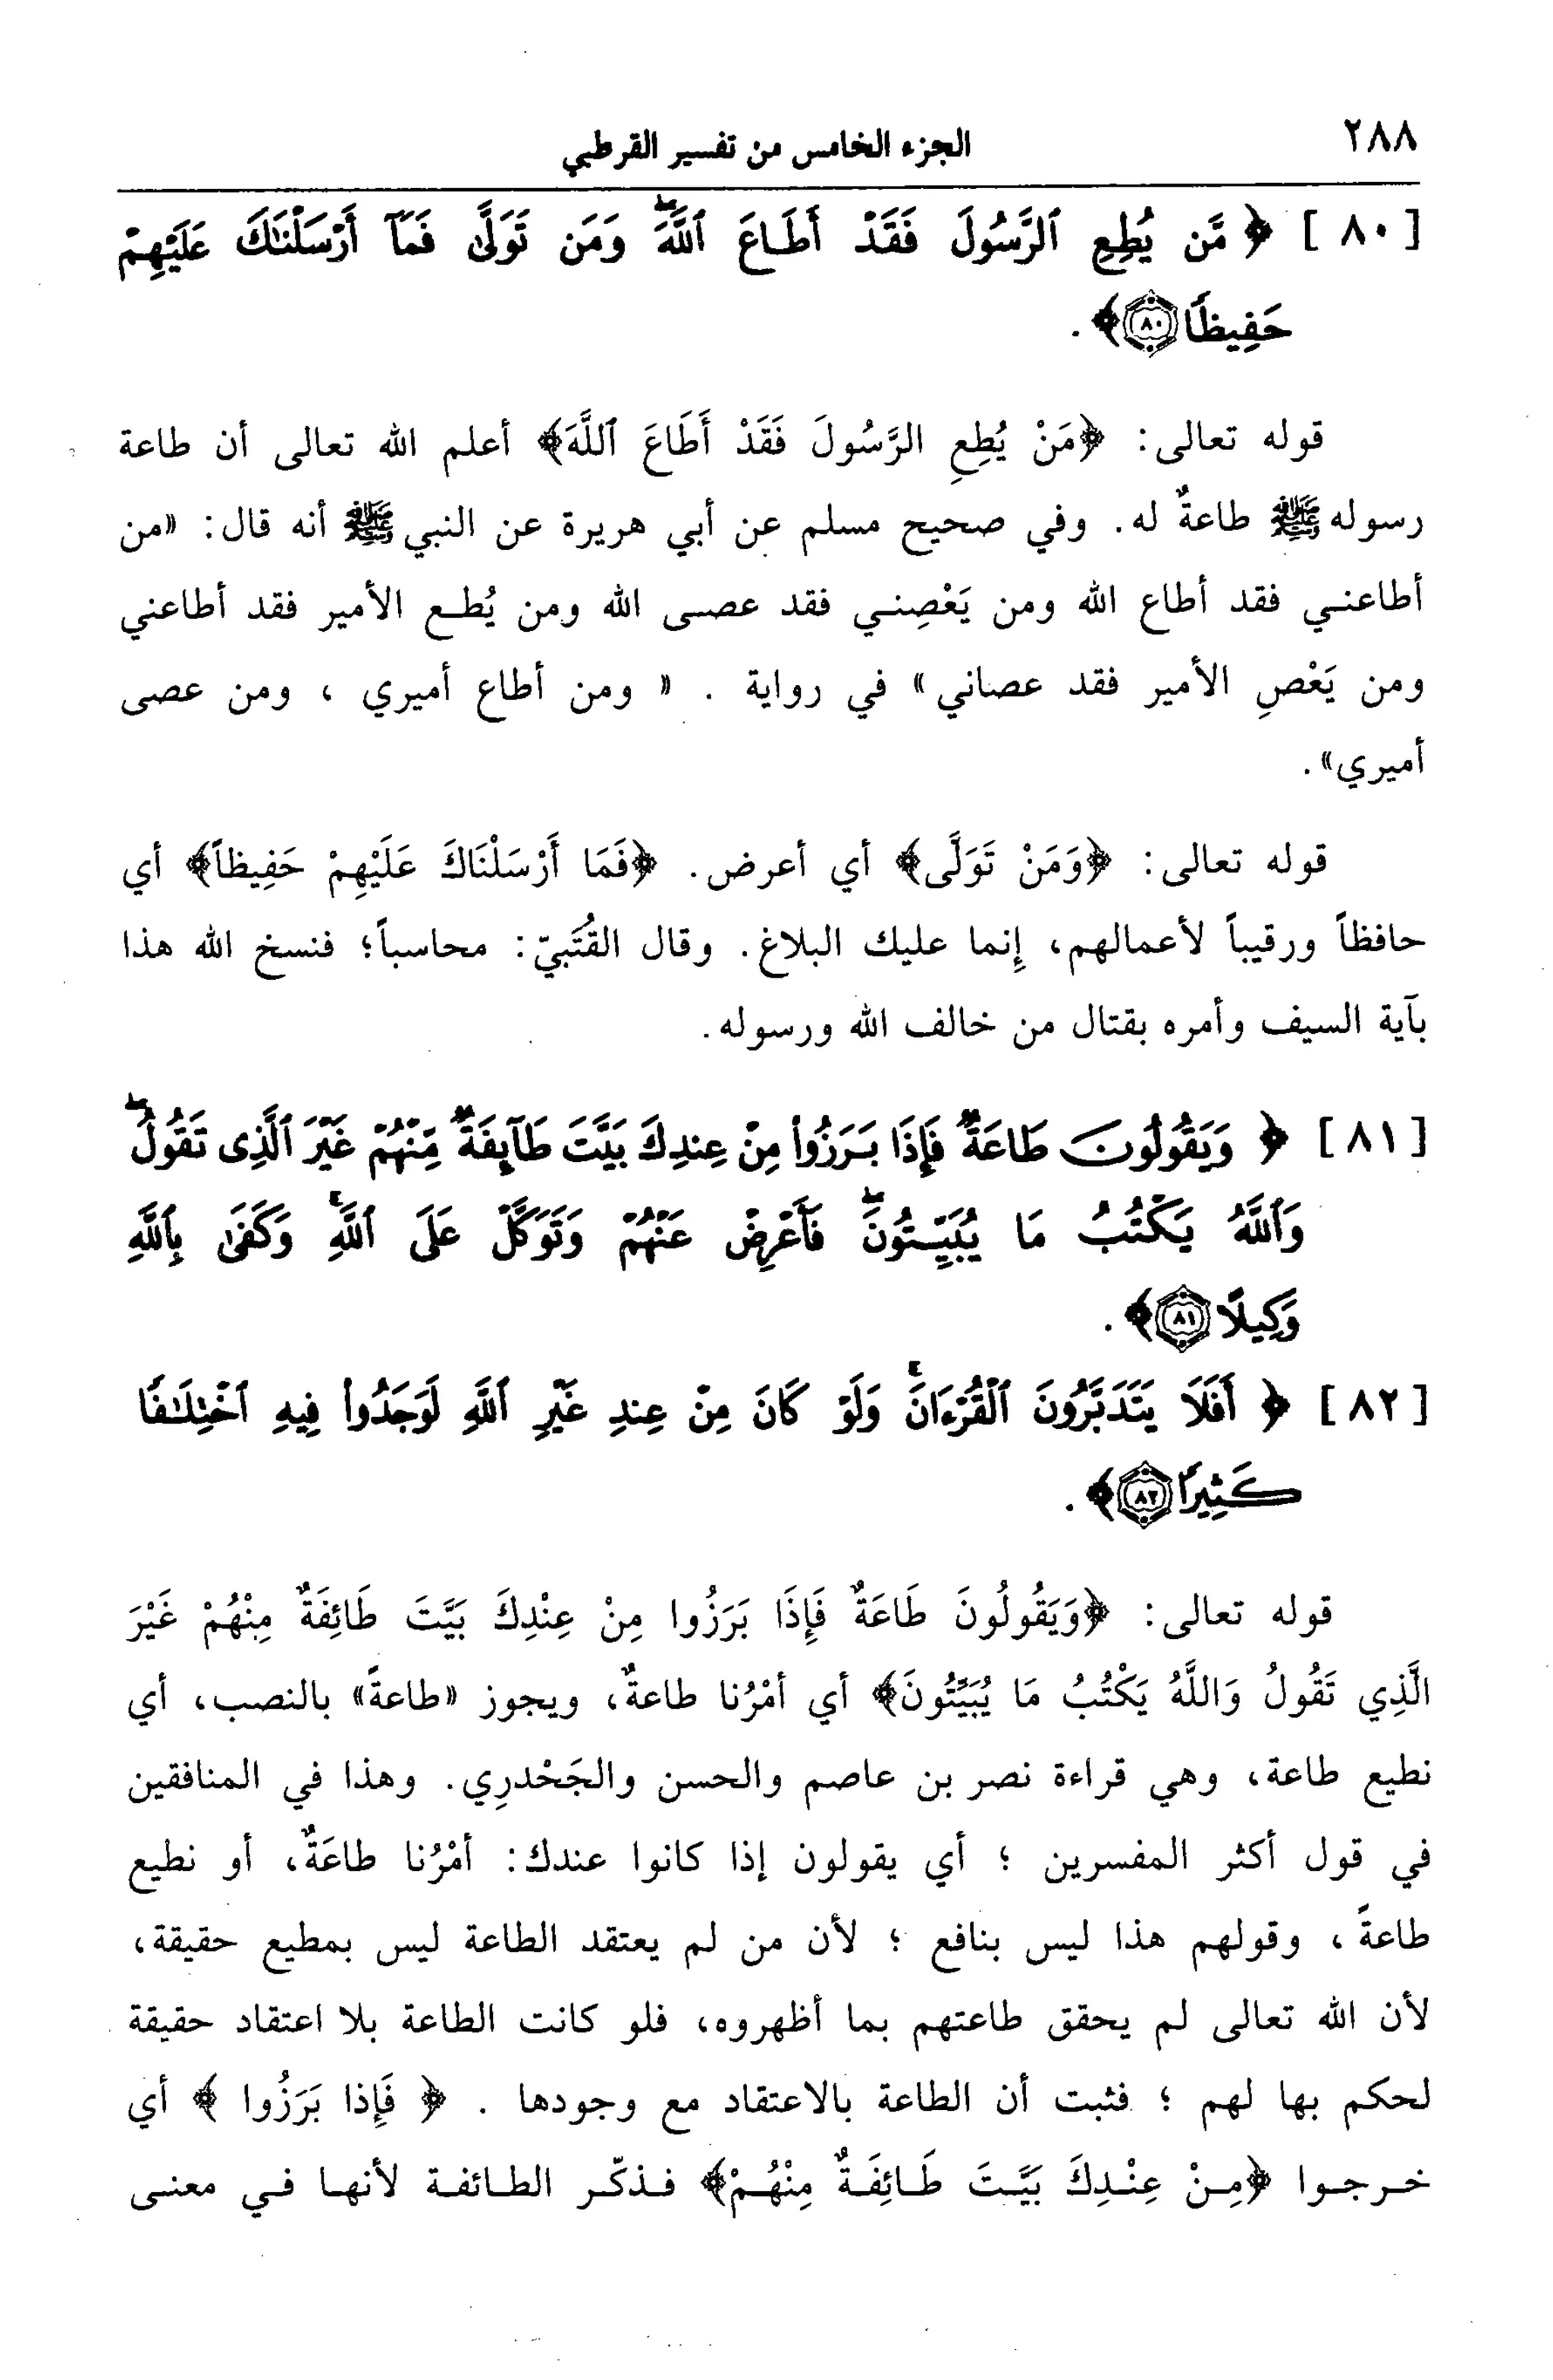 ٢٨٨
الجزء الخامس من تفسير القرطبي
[ ٨٠ ] ﴿ مَّن يُطِعِ ٱلرَّسُولَ فَقَدْ أَطَاعَ ٱللَّهَۖ وَمَن تَوَلَّىٰ فَمَآ أَرْسَلْنَٰكَ عَلَيْهِمْ
حَفِيظًا ٨٠﴾ .
قوله تعالى: ﴿مَنْ يُطِعِ الرَّسُولَ فَقَدْ أَطَاعَ ٱللَّهَ﴾ أعلم الله تعالى أن طاعة
رسوله ﷺ طاعةٌ له. وفي صحيح مسلم عن أبي هريرة عن النبي ﷺ أنه قال: «من
أطاعنـي فقد أطاع الله ومن يَعْصِنـي فقد عصـى الله ومن يُطـع الأمير فقد أطاعني
ومن يَعْصِ الأمير فقد عصاني» في رواية . « ومن أطاع أميري ، ومن عصى
أميري».
قوله تعالى: ﴿وَمَنْ تَوَلَّى﴾ أي أعرض. ﴿فَمَا أَرْسَلْنَاكَ عَلَيْهِمْ حَفِيظاً﴾ أي
حافظاً ورقيباً لأعمالهم، إنما عليك البلاغ. وقال القُتَبيّ: محاسباً؛ فنسخ الله هذا
بآية السيف وأمره بقتال من خالف الله ورسوله.
[ ٨١ ] ﴿ وَيَقُولُونَ طَاعَةٌ فَإِذَا بَرَزُوا۟ مِنْ عِندِكَ بَيَّتَ طَآئِفَةٌ مِّنْهُمْ غَيْرَ ٱلَّذِى تَقُولُۖ
وَٱللَّهُ يَكْتُبُ مَا يُبَيِّتُونَۖ فَأَعْرِضْ عَنْهُمْ وَتَوَكَّلْ عَلَى ٱللَّهِۚ وَكَفَىٰ بِٱللَّهِ
وَكِيلًا ٨١﴾ .
[ ٨٢ ] ﴿ أَفَلَا يَتَدَبَّرُونَ ٱلْقُرْءَانَۚ وَلَوْ كَانَ مِنْ عِندِ غَيْرِ ٱللَّهِ لَوَجَدُوا۟ فِيهِ ٱخْتِلَٰفًا
كَثِيرًا ٨٢﴾ .
قوله تعالى: ﴿وَيَقُولُونَ طَاعَةٌ فَإِذَا بَرَزُوا مِنْ عِنْدِكَ بَيَّتَ طَائِفَةٌ مِنْهُمْ غَيْرَ
الَّذِي تَقُولُ وَاللَّهُ يَكْتُبُ مَا يُبَيِّتُونَ﴾ أي أمْرُنا طاعةٌ، ويجوز «طاعةً» بالنصب، أي
نطيع طاعة، وهي قراءة نصر بن عاصم والحسن والجَحْدرِي. وهذا في المنافقين
في قول أكثر المفسرين ؛ أي يقولون إذا كانوا عندك: أمْرُنا طاعَةٌ، أو نطيع
طاعةً ، وقولهم هذا ليس بنافع ؛ لأن من لم يعتقد الطاعة ليس بمطيع حقيقة،
لأن الله تعالى لم يحقق طاعتهم بما أظهروه، فلو كانت الطاعة بلا اعتقاد حقيقة
لحكم بها لهم ؛ فثبت أن الطاعة بالاعتقاد مع وجودها . ﴿ فَإِذا بَرَزُوا ﴾ أي
خـرجـوا ﴿مِـنْ عِنْـدِكَ بَيَّـتَ طَـائِفَـةٌ مِنْهُـمْ﴾ فـذكّـر الطـائفـة لأنهـا فـي معنـى